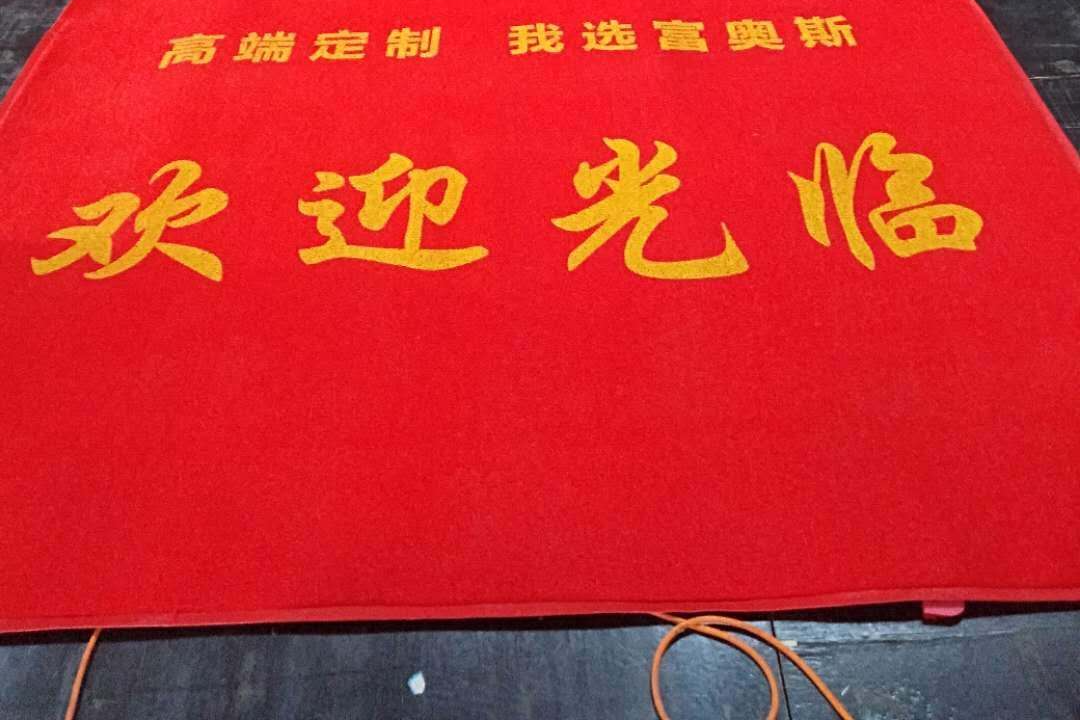 高端定制 我选富奥斯
欢迎光临